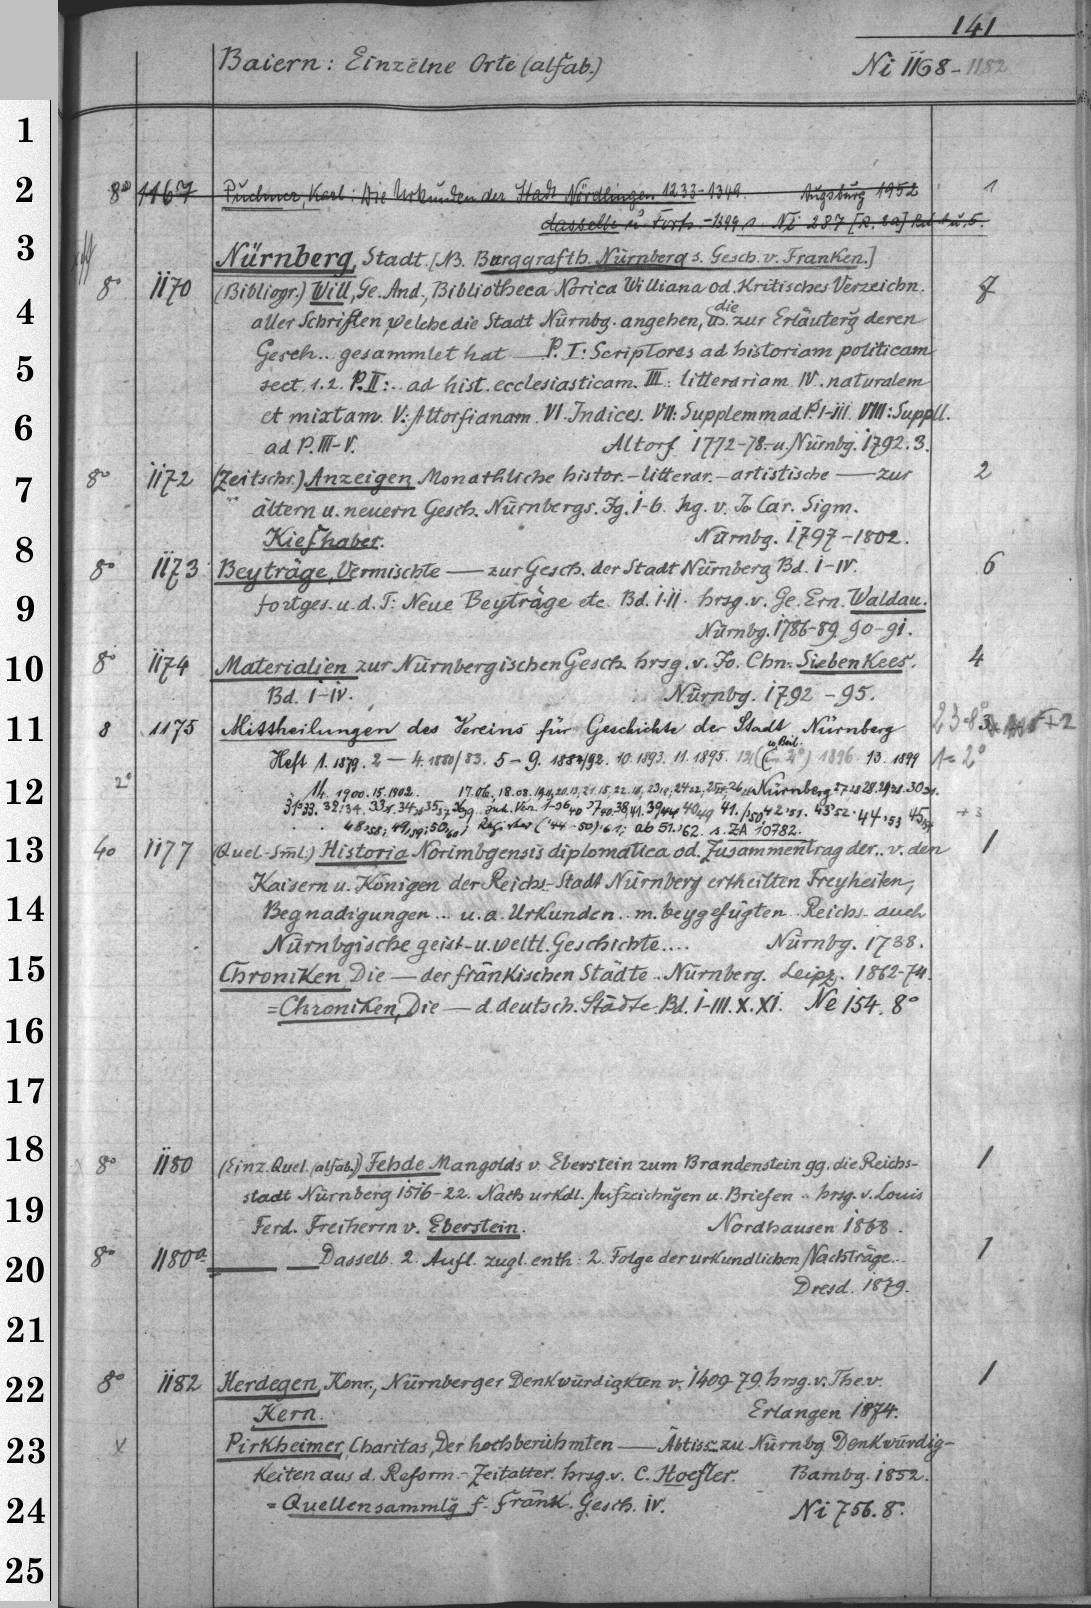 141
Baiern: Einzelne Orte (alfab.) Ni 1168-1182
1
2
3
4
5
6
7
8
9
10
11
12
13
14
15
16
17
18
19
20
21
22
23
24
25
8° 1167 Puchner, Karl: Die Urkunden der Stadt Nördlingen 1233-1349. Augsburg 1952 1
dasselbe u. Forts. -1399 s. Ni 287
Nürnberg, Stadt. [NB. Burggrafth. Nürnberg s. Gesch. v. Franken.]
8° 1170 (Bibliogr.) Will, Ge. And., Bibliotheca Norica Williana od. Kritisches Verzeichn. 7
aller Schriften, welche die Stadt Nürnbg. angehen, u. die zur Erläuterg deren
Gesch.. gesammlet hat — P. I: Scriptores ad historiam politicam
sect. 1.2. P. II: .. ad hist. ecclesiasticam. III: litterariam IV. naturalem
et mixtam. V: Attorfianam. VI. Indices. VII: Supplemm ad P. I-III. VIII: Suppll.
ad P. III-V. Altorf 1772-78. u. Nürnbg. 1792.3.
8° 1172 (Zeitschr.) Anzeigen Monathliche histor.-litterar.-artistische — zur 2
ältern u. neuern Gesch. Nürnbergs. Jg. 1-6. hg. v. Jo Car. Sigm.
Kiefhaber. Nürnbg. 1797-1802.
8° 1173 Beyträge, Vermischte — zur Gesch. der Stadt Nürnberg Bd. I-IV. 6
fortges. u. d. T: Neue Beyträge etc. Bd. I-II. hrsg. v. Ge. Ern. Waldau.
Nürnbg. 1786-89. 90-91.
8° 1174 Materialien zur Nürnbergischen Gesch. hrsg. v. Jo. Chn. Siebenkees. 4
Bd. I-IV. Nürnbg. 1792-95.
8 1175 Mittheilungen des Vereins für Geschichte der Stadt Nürnberg
Heft 1. 1879. 2-4. 1880/83. 5-9. 1884/92. 10. 1893. 11. 1895. 12 1896. 13. 1899 1=2°
2° 14. 1900. 15. 1902. 17.06, 18.08. Nürnberg
48,58; 49,59; 50,60; Register ('44-50)'61; ab 51,'62 s. ZA 10782.
4° 1177 (Quel.-Sml.) Historia Norimbgensis diplomatica od. Zusammentrag der.. v. den 1
Kaisern u. Königen der Reichs-Stadt Nürnberg ertheilten Freyheiten,
Begnadigungen... u. a. Urkunden.. m. beygefügten.. Reichs- auch
Nürnbgische geist- u. weltl. Geschichte.... Nürnbg. 1738.
Chroniken Die — der fränkischen Städte.. Nürnberg. Leipz. 1862-74.
= Chroniken, Die — d. deutsch. Städte. Bd. I-III. X. XI. Ne 154. 8°
8° 1180 (Einz. Quel. (alfab.)) Fehde Mangolds v. Eberstein zum Brandenstein gg. die Reichs- 1
stadt Nürnberg 1516-22. Nach urkdl. Aufzeichngen u. Briefen.. hrsg. v. Louis
Ferd. Freiherrn v. Eberstein. Nordhausen 1868.
8° 1180a — — Dasselb. 2. Aufl. zugl. enth: 2. Folge der urkundlichen Nachträge.. 1
Dresd. 1879.
8° 1182 Herdegen, Konr., Nürnberger Denkwürdigkten v. 1409-79. hrsg. v. The. v. 1
Kern. Erlangen 1874.
x Pirkheimer, Charitas, Der hochberühmten — Äbtiss. zu Nürnbg Denkwürdig-
keiten aus d. Reform.-Zeitalter. hrsg. v. C. Hoefler. Bambg. 1852.
= Quellensammlg f. Fränk. Gesch. IV. Ni 756. 8°.